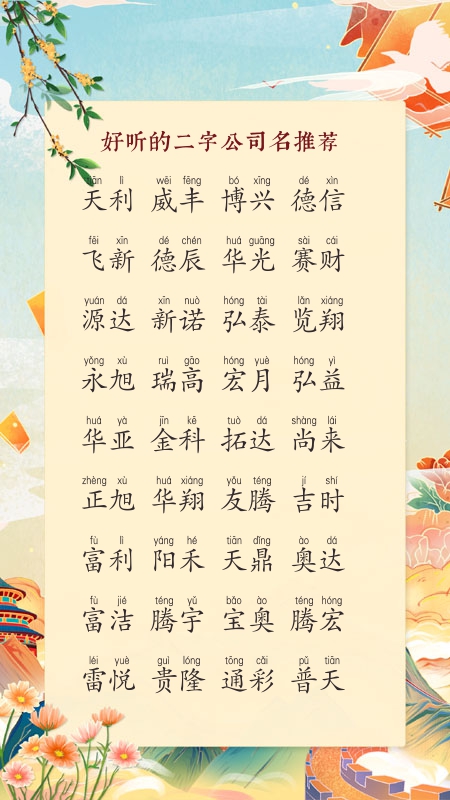 好听的二字公司名推荐
tiān lì wēi fēng bó xīng dé xìn
天利 威丰 博兴 德信
fēi xīn dé chén huá guāng sài cái
飞新 德辰 华光 赛财
yuán dá xīn nuò hóng tài lǎn xiáng
源达 新诺 弘泰 览翔
yǒng xù ruì gāo hóng yuè hóng yì
永旭 瑞高 宏月 弘益
huá yà jīn kē tuò dá shàng lái
华亚 金科 拓达 尚来
zhèng xù huá xiáng yǒu téng jí shí
正旭 华翔 友腾 吉时
fù lì yáng hé tiān dǐng ào dá
富利 阳禾 天鼎 奥达
fù jié téng yǔ bǎo ào téng hóng
富洁 腾宇 宝奥 腾宏
léi yuè guì lóng tōng cǎi pǔ tiān
雷悦 贵隆 通彩 普天